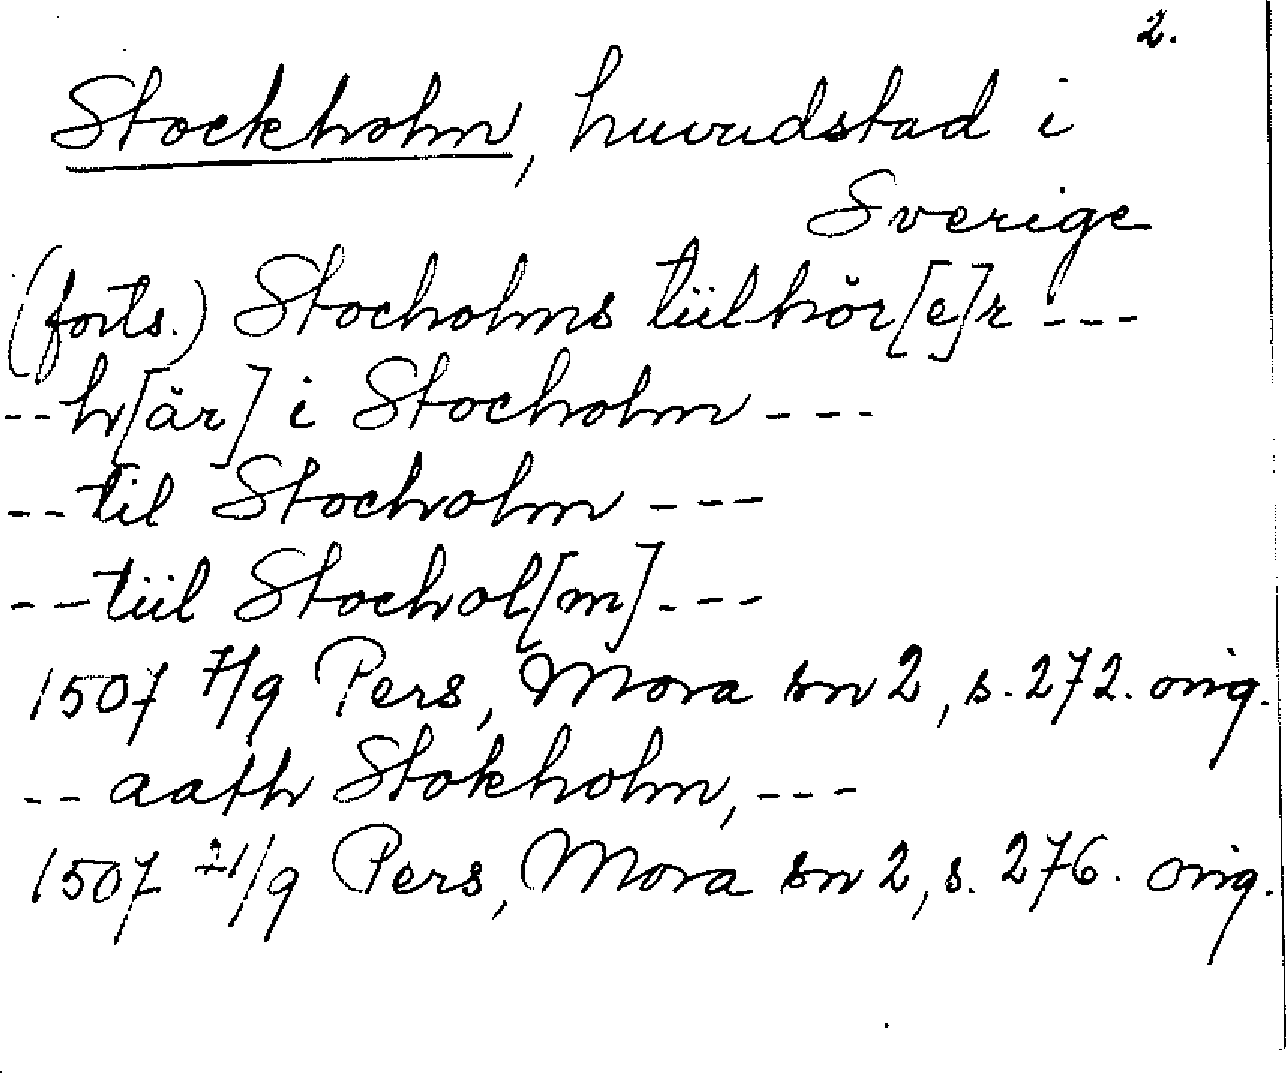 2.
Stockholm, huvudstad i
Sverige
(forts.) Stocholms tiilhör[e]r ---
-- h[är] i Stocholm ---
-- til Stocholm ---
-- tiil Stochol[m] ---
1507 7/9 Pers, Mora sn 2, s. 272. orig.
-- aath Stokholm, ---
1507 21/9 Pers, Mora sn 2, s. 276. orig.